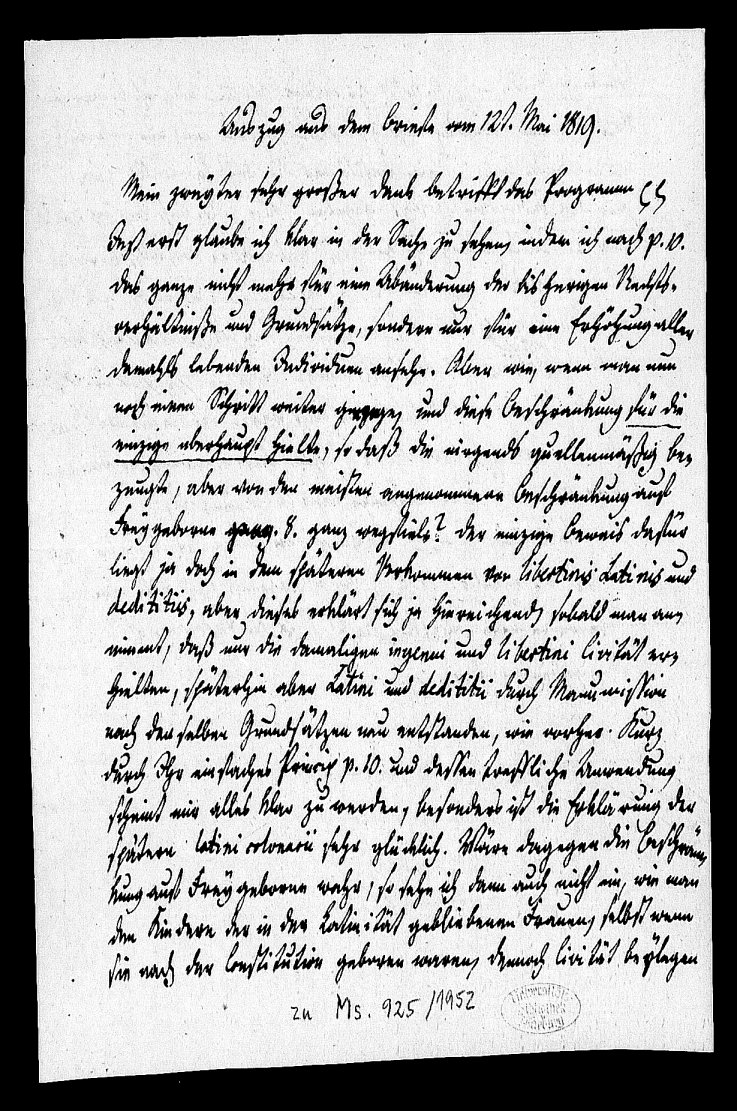 Auszug aus dem Briefe vom 12t. Mai 1819.
Mein zweyter sehr großer Dank betrifft das Programm
Jezt erst glaube ich klar in der Sache zu sehen, indem ich nach p. 10.
das ganze nicht mehr für eine Abänderung der bisherigen Rechts-
verhältniße und Grundsätze, sondern nur für eine Erhöhung aller
damahls lebenden Individuen ansehe. Aber wie, wenn man nun
noch einen Schritt weiter ginge, und diese Beschränkung für die
einzige überhaupt hielte, so daß die nirgends quellenmäßig be-
zeugte, aber von den meisten angenommene Beschränkung auf
Freygeborne p. 8. ganz wegfiele? Der einzige Beweis dafür
liegt ja doch in dem späteren Vorkommen von libertinis Latinis und
dedititiis, aber dieses erklärt sich ja hinreichend, sobald man an-
nimmt, daß nur die damaligen ingenui und libertini Civität er-
hielten, späterhin aber Latini und dedititii durch Manumission
nach denselben Grundsätzen neu entstanden, wie vorher. Kurz
durch Ihr einfaches Princip p. 10. und dessen treffliche Anwendung
scheint mir alles klar zu werden, besonders ist die Erklärung der
spätern latini colonarii sehr glücklich. Wäre dagegen die Beschrän-
kung auf Freygeborne wahr, so sehe ich dann auch nicht ein, wie man
den Kindern der in der Latinität gebliebenen Frauen, selbst wenn
sie nach der Constitution geboren waren, dennoch Civität beylegen
zu Ms. 925/1952
Universitäts-
Bibliothek
Marburg